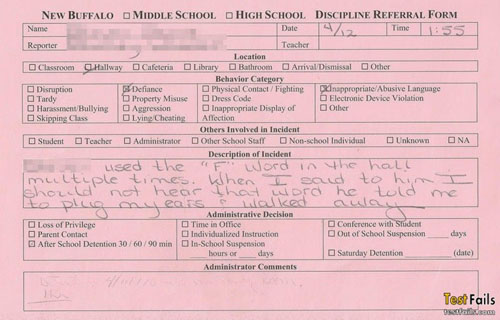 NEW BUFFALO ☐ MIDDLE SCHOOL ☐ HIGH SCHOOL DISCIPLINE REFERRAL FORM
Name Date 4/12 Time 1:55
Reporter Teacher
Location
☐ Classroom ☑ Hallway ☐ Cafeteria ☐ Library ☐ Bathroom ☐ Arrival/Dismissal ☐ Other
Behavior Category
☐ Disruption ☒ Defiance ☐ Physical Contact / Fighting ☒ Inappropriate/Abusive Language
☐ Tardy ☐ Property Misuse ☐ Dress Code ☐ Electronic Device Violation
☐ Harassment/Bullying ☐ Aggression ☐ Inappropriate Display of ☐ Other
☐ Skipping Class ☐ Lying/Cheating Affection
Others Involved in Incident
☐ Student ☐ Teacher ☐ Administrator ☐ Other School Staff ☐ Non-school Individual ☐ Unknown ☐ NA
Description of Incident
used the "F" word in the hall
multiple times. When I said to him I
should not hear that word he told me
to plug my ears & walked away
Administrative Decision
☐ Loss of Privilege ☐ Time in Office ☐ Conference with Student
☐ Parent Contact ☐ Individualized Instruction ☐ Out of School Suspension ____ days
☑ After School Detention 30 / 60 / 90 min ☐ In-School Suspension
____ hours or ____ days ☐ Saturday Detention ____ (date)
Administrator Comments
TestFails
testfails.com